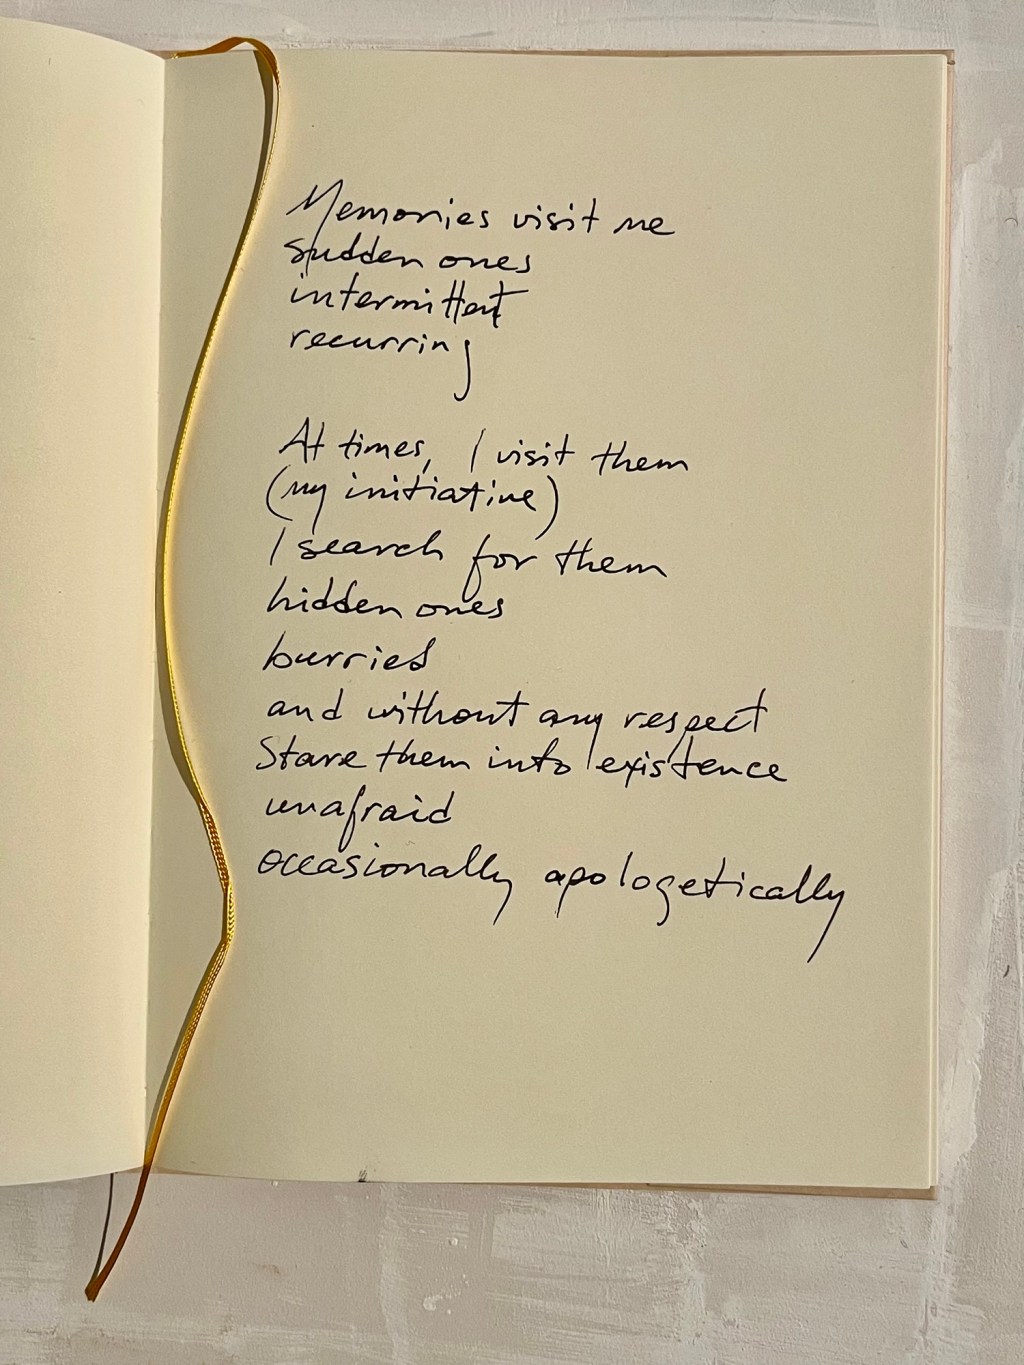 Memories visit me
sudden ones
intermittent
recurring
At times, I visit them
(my initiative)
I search for them
hidden ones
burried
and without any respect
Stare them into existence
unafraid
occasionally apologetically